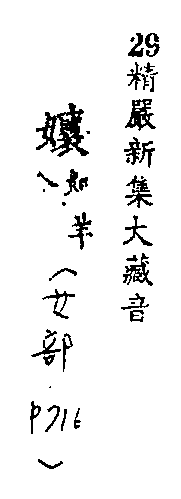 29精嚴新集大藏音
孃
、知.羊
(女部.P716)